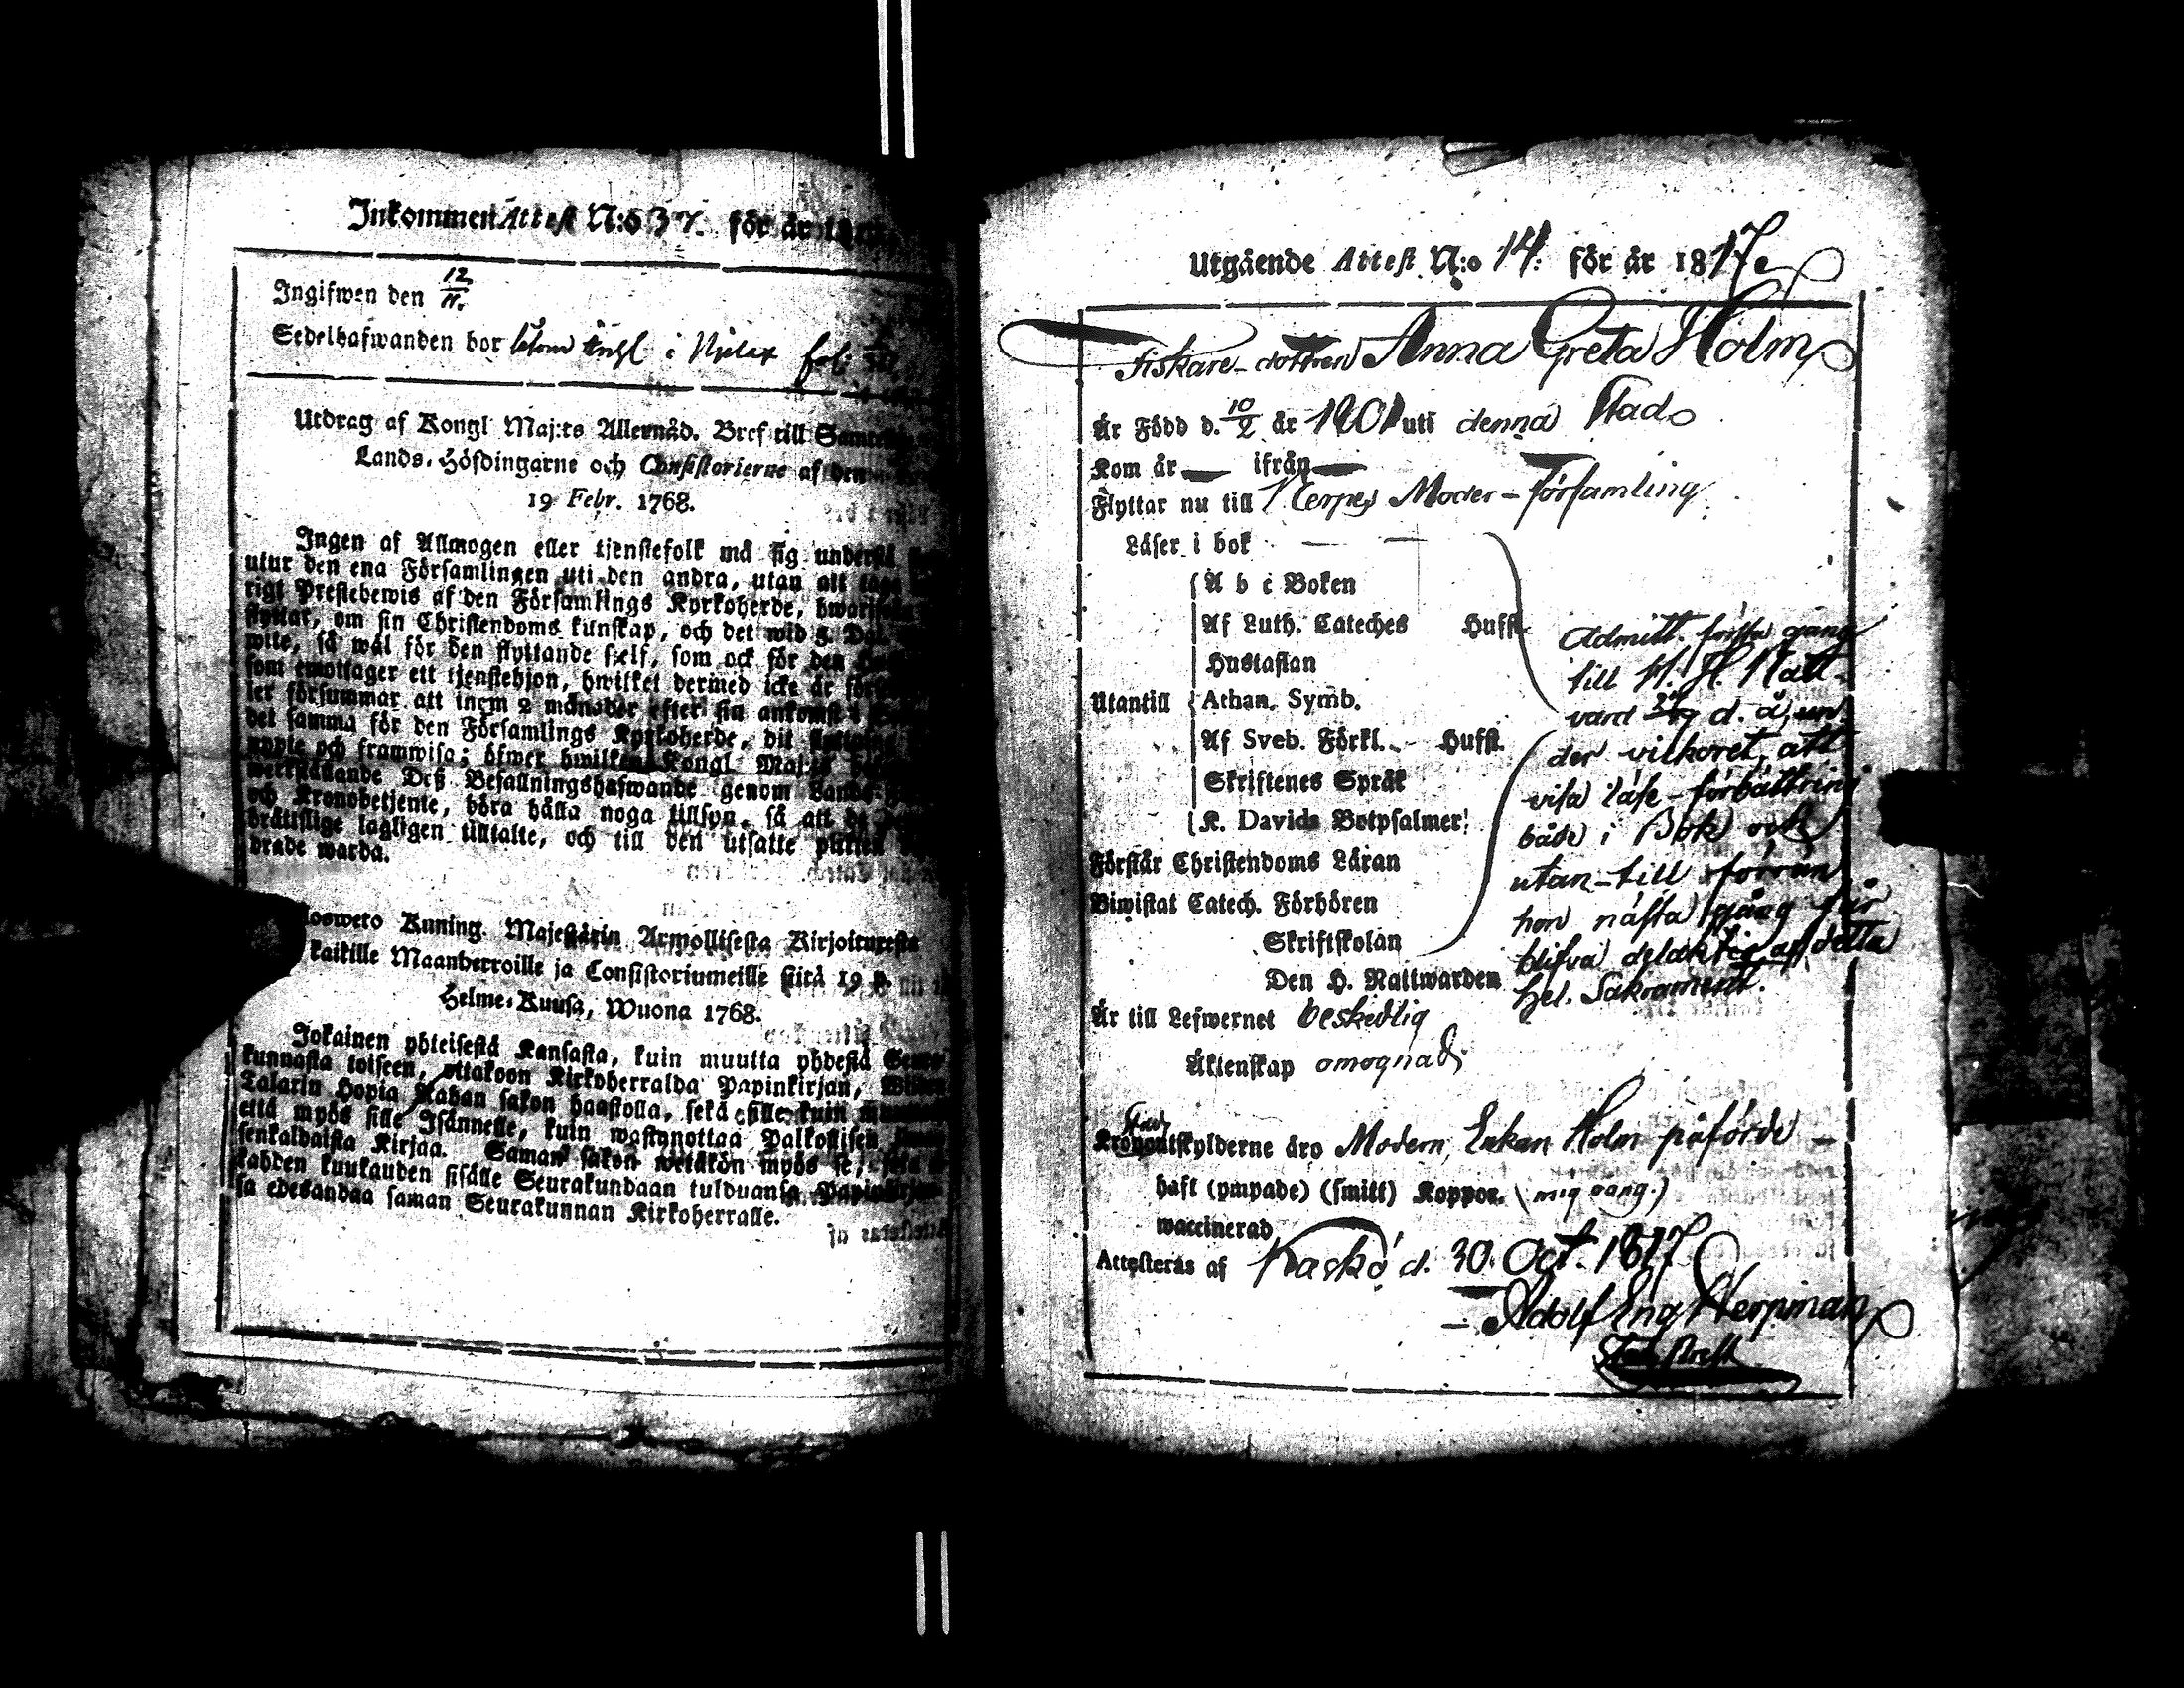 Inkommen Attest N:o 37. för år
Ingifwen den 12/11.
Sedelhafwanden bor i
Utdrag af Kongl Maj:ts Allernåd. Bref till
Lands-Höfdingarne och Consistorierne af den
19 Febr. 1768.
Ingen af Allmogen eller tjenstefolk må sig understå
utur den ena Församlingen uti den andra, utan att
rigt Prestebewis af den Församlings Kyrkoherde,
flyttar, om sin Christendoms kunskap, och det wid 5. Dal.
wite, så wäl för den flyttande sjelf, som ock för den
som emottager ett tjenstehjon, hwilket dermed icke är
ler försummar att inom 2 månader efter sin ankomst i
det samma för den Församlings Kyrkoherde, dit
uppte och framwisa; öfwer hwilken Kongl Maj:ts
werkställande Deß Befallningshafwande genom Lands-
och Kronobetjente, böra hålla noga tillsyn, så att de
brättslige lagligen tilltalte, och till den utsatte plikten
drade warda.
Kuning. Majestätin Armollisesta Kirjoituxesta
kaikille Maanherroille ja Consistoriumeille siitä 19 p.
Helme-Kuusa, Wuona 1768.
Jokainen yhteisestä Kansasta, kuin muutta yhdestä
kunnasta toiseen, ottakoon Kirkoherralda Papinkirjan,
Talarin Hopia Rahan sakon haastolla, sekä sille kuin
että myös sille Isännelle, kuin wastanottaa Palkollisen
senkaldaista Kirjaa. Saman sakon wetäkön myös se,
kahden kuukauden sisälle Seurakundaan tulduansa
sa edesandaa saman Seurakunnan Kirkoherralle.
Utgående Attest N:o 14. för år 1817.
Fiskare-dottren Anna Greta Holm
Är Född d. 10/2 år 1801 uti denna Stad
Kom år — ifrån —
Flyttar nu till Nerpes Moder-församling
Läser i bok — —
A b c Boken
Af Luth. Cateches Hufst.
Hustaflan
Utantill Athan. Symb.
Af Sveb. Förkl. Hufst.
Skriftenes Språk
K. Davids Botpsalmer
Förstår Christendoms Läran
Biwistat Catech. Förhören
Skriftskolan
Den H. Nattwarden
Admitt. första gång
till H. H. Natt-
vard d. å, un-
der vilkoret, att
visa läse-förbättring
både i Bok och
utan-till förrän
hon nästa gång får
blifva delaktig af detta
hel. Sakrament.
Är till Lefwernet beskedlig
Äktenskap omognad
Stads
Kronoutskylderne äro Modern, Enkan Holm påförde —
haft (ympade) (smitt) Koppor. (mig oäng.)
waccinerad
Attesteras af Kaskö d. 30. Oct. 1817
Adolf Eng Nerpman